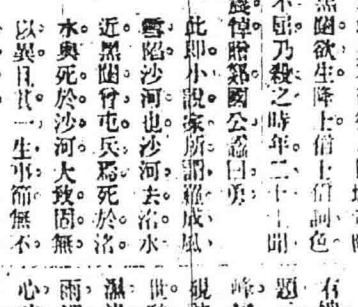 黑闥欲生降士信士信詞色
不屈乃殺之時年二十上聞
震悼贈郯國公諡曰勇
此即小說家所謂羅成風
雪陷沙河也沙河去洺水
近黑闥曾屯兵焉死於洺
水與死於沙河大致固無
以異且其一生事節無不
題
峰
世
雨
心